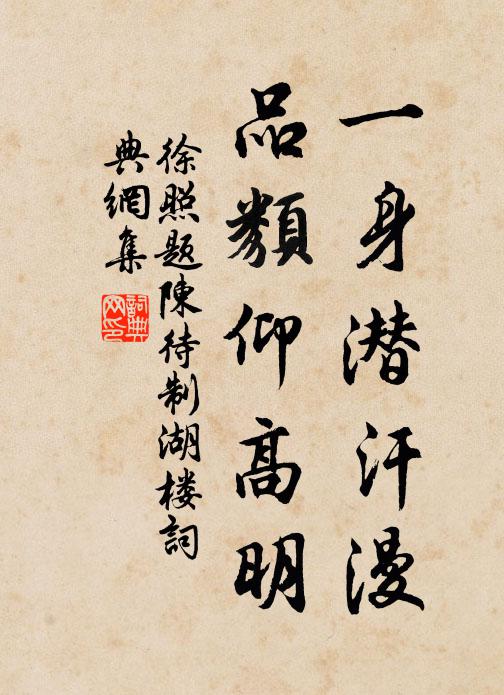 一身潜汗漫
品類仰高明
徐照題陳待制湖楼詞
典網集
詞典
网印